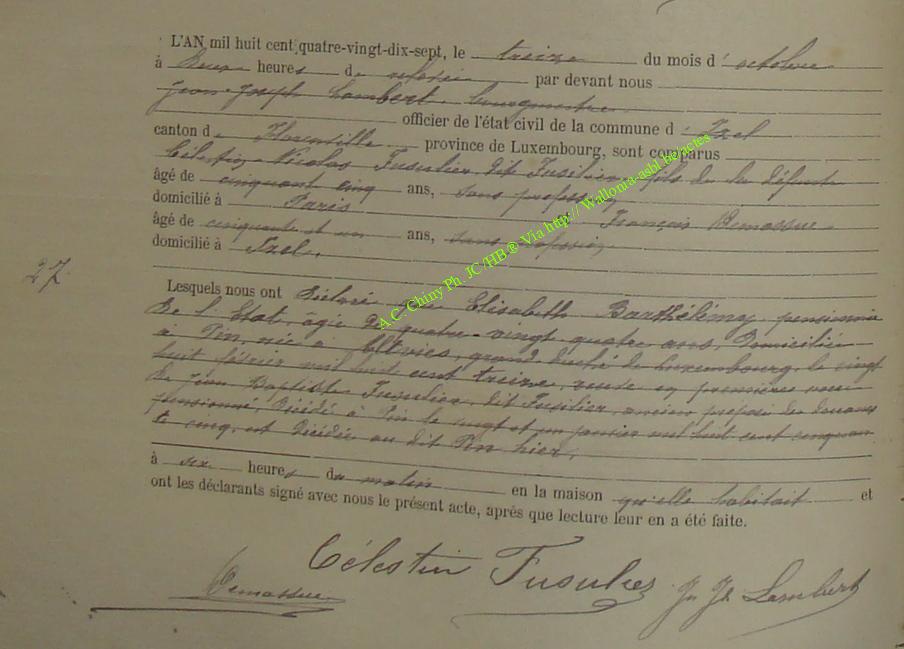 L'AN mil huit cent quatre-vingt-dix-sept, le treize du mois d'octobre
à deux heures de relevée par devant nous
Jean-Joseph Lambert, bourgmestre
officier de l'état civil de la commune d'Izel
canton de Florenville province de Luxembourg, sont comparus
Célestin-Nicolas Fusulier, dit Fusilier, fils de la défunte
âgé de cinquante cinq ans, sans profession
domicilié à Paris François Demassue
âgé de cinquante et un ans, sans profession
domicilié à Izel.
27
Lesquels nous ont déclaré que Elisabeth Barthélémy, pensionnée
de l'Etat, âgée de quatre-vingt quatre ans, domiciliée
à Pin, née à grand duché de Luxembourg, le vingt
huit février mil huit cent treize, veuve en premières noces
de Jean Baptiste Fusulier, dit Fusilier, ancien préposé des douanes
pensionné, décédé à Pin le vingt et un janvier mil huit cent cinquan
te cinq, est décédée au dit Pin hier,
à six heures du matin en la maison qu'elle habitait et
ont les déclarants signé avec nous le présent acte, après que lecture leur en a été faite.
Célestin Fusulier
Demassue Jn Jh Lambert
A.C. Chiny Ph. JC/HB ® Via http:// Wallonia-asbl.be/actes